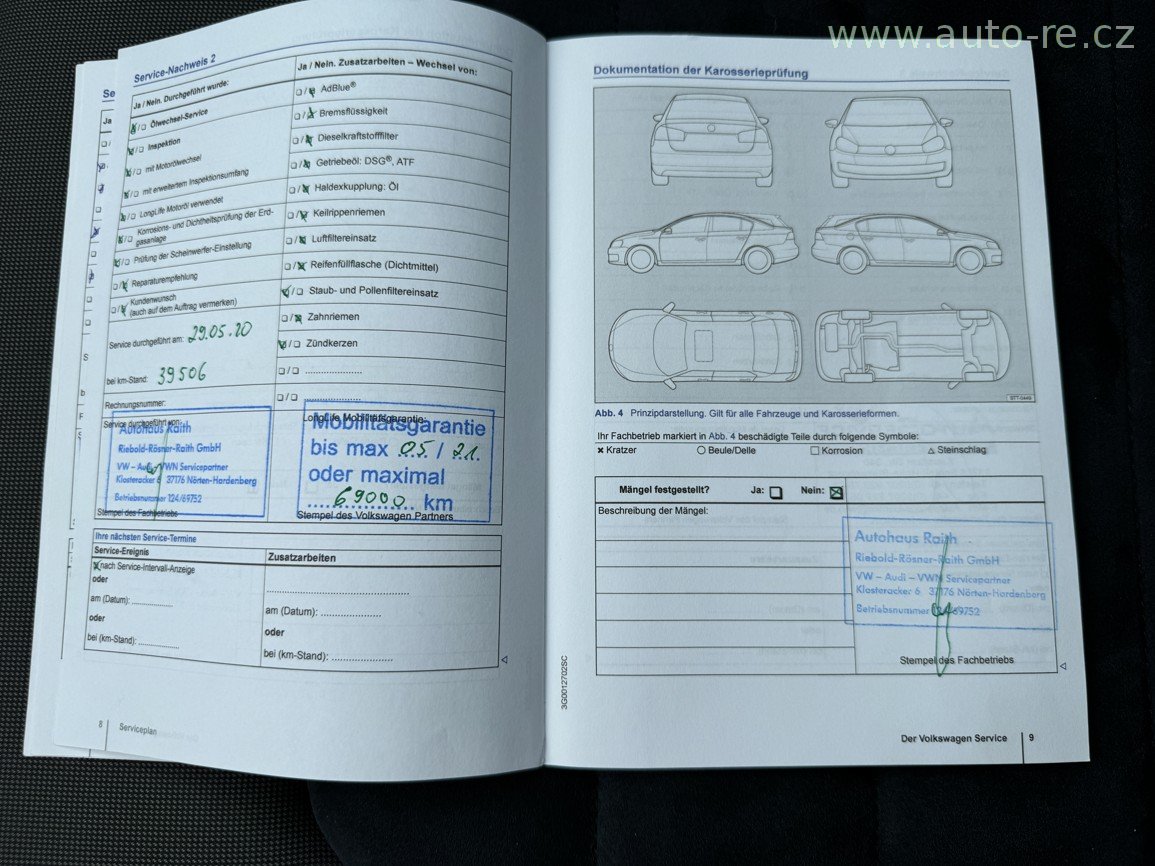 www.auto-re.cz
Se
Ja
S
b
F
Service-Nachweis 2
Ja / Nein. Durchgeführt wurde:
Ölwechsel-Service
Inspektion
mit Motorölwechsel
mit erweitertem Inspektionsumfang
LongLife Motoröl verwendet
Korrosions- und Dichtheitsprüfung der Erd-
gasanlage
Prüfung der Scheinwerfer-Einstellung
Reparaturempfehlung
Kundenwunsch
(auch auf dem Auftrag vermerken)
Service durchgeführt am: 29.05.20
bei km-Stand: 39506
Rechnungsnummer:
Service durchgeführt von:
Autohaus Raith
Riebold-Rösner-Raith GmbH
VW – Audi – VWN Servicepartner
Klosteracker 6 37176 Nörten-Hardenberg
Betriebsnummer 124/69752
Stempel des Fachbetriebs
Ja / Nein. Zusatzarbeiten – Wechsel von:
AdBlue®
Bremsflüssigkeit
Dieselkraftstofffilter
Getriebeöl: DSG®, ATF
Haldexkupplung: Öl
Keilrippenriemen
Luftfiltereinsatz
Reifenfüllflasche (Dichtmittel)
Staub- und Pollenfiltereinsatz
Zahnriemen
Zündkerzen
LongLife Mobilitätsgarantie:
Mobilitätsgarantie
bis max 05 / 21.
oder maximal
69000 km
Stempel des Volkswagen Partners
Ihre nächsten Service-Termine
Service-Ereignis
nach Service-Intervall-Anzeige
oder
am (Datum): ..................
oder
bei (km-Stand): ..................
Zusatzarbeiten
am (Datum): ..................
oder
bei (km-Stand): ..................
8 Serviceplan
Dokumentation der Karosserieprüfung
Abb. 4 Prinzipdarstellung. Gilt für alle Fahrzeuge und Karosserieformen.
Ihr Fachbetrieb markiert in Abb. 4 beschädigte Teile durch folgende Symbole:
Kratzer Beule/Delle Korrosion Steinschlag
Mängel festgestellt? Ja: Nein:
Beschreibung der Mängel:
Autohaus Raith
Riebold-Rösner-Raith GmbH
VW – Audi – VWN Servicepartner
Klosteracker 6 37176 Nörten-Hardenberg
Betriebsnummer 124/69752
Stempel des Fachbetriebs
3G0012702SC
Der Volkswagen Service 9